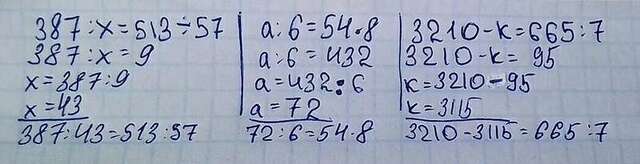 387:x=513÷57
387:x=9
x=387:9
x=43
387:43=513:57
a:6=54·8
a:6=432
a=432:6
a=72
72:6=54·8
3210-к=665:7
3210-к= 95
к=3210-95
к=3115
3210-3115=665:7